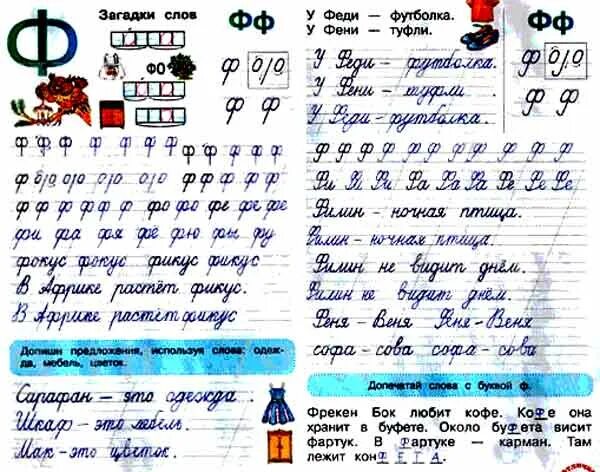 Ф
Загадки слов
Фф
ФО
ф
ф ф
ф ф ф ф ф ф ф ф ф ф ф ф
ф
ф ф ф ф ф ф фо фо фе фе фе
фи фа фя фё фю фы фу
фокус фокус фикус фикус
В Африке растёт фикус.
В Африке растёт фикус
Допиши предложения, используя слова: одеж-
да, мебель, цветок.
Сарафан – это одежда.
Шкаф – это мебель.
Мак – это цветок.
У Феди — футболка.
У Фени — туфли.
Фф
У Феди – футболка.
У Фени – туфли
У Феди – футболка.
ф
ф ф
ф ф ф ф ф ф ф ф ф ф ф ф
Фи Фи Фи Фа Фа Фа Фе Фе Фе
Филин – ночная птица.
Филин – ночная птица.
Филин не видит днём.
Филин не видит днём.
Феня – Веня Феня – Веня
софа – сова софа – сова
Допечатай слова с буквой ф.
Фрекен Бок любит кофе. КоФе она
хранит в буфете. Около буФета висит
фартук. В Фартуке — карман. Там
лежит конФЕТА.